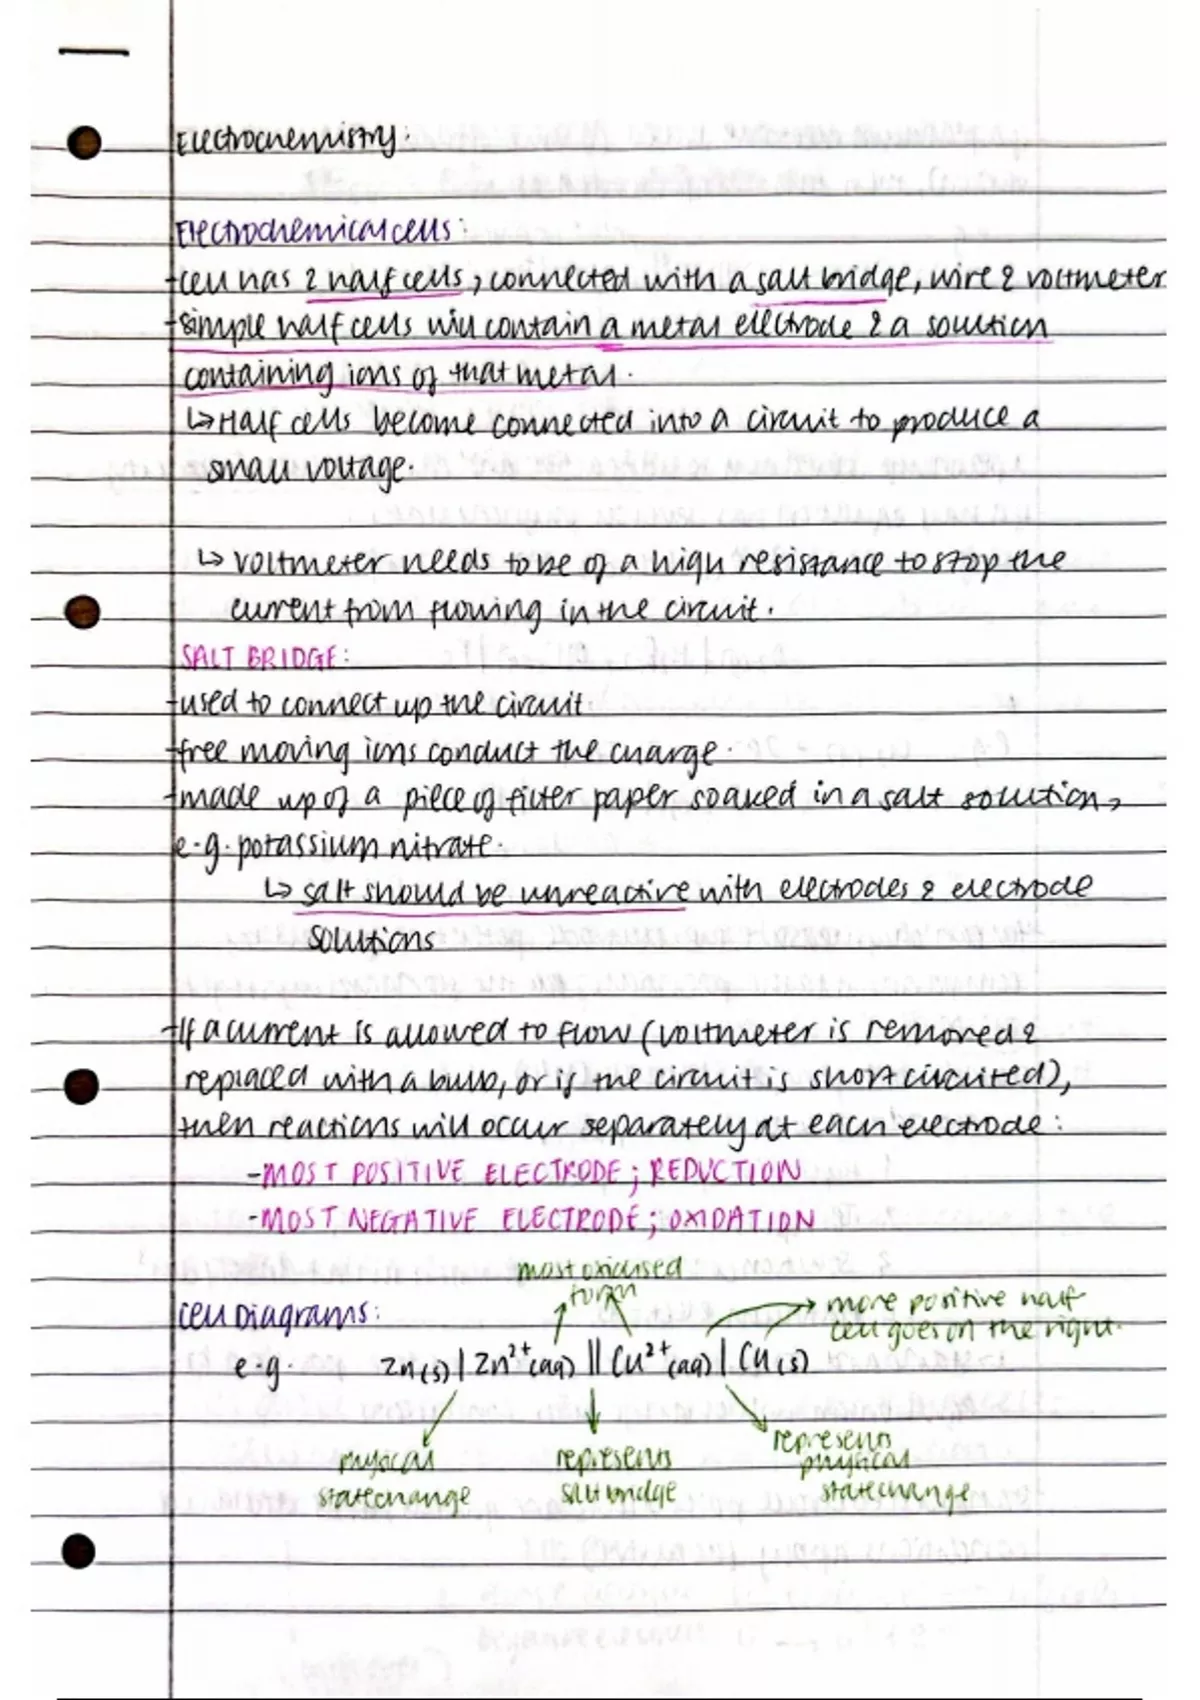 Electrochemistry:
Electrochemical cells:
-Cell has 2 half cells, connected with a salt bridge, wire & voltmeter
-Simple half cells will contain a metal electrode & a solution
containing ions of that metal.
↳ Half cells become connected into a circuit to produce a
small voltage.
↳ voltmeter needs to be of a high resistance to stop the
current from flowing in the circuit.
SALT BRIDGE:
-used to connect up the circuit
-free moving ions conduct the charge.
-made up of a piece of filter paper soaked in a salt solution,
e.g. potassium nitrate.
↳ salt should be unreactive with electrodes & electrode
solutions
-If a current is allowed to flow (voltmeter is removed &
replaced with a bulb, or if the circuit is short circuited),
then reactions will occur separately at each electrode:
-MOST POSITIVE ELECTRODE; REDUCTION
-MOST NEGATIVE ELECTRODE; OXIDATION
most oxidised
form
Cell Diagrams:
more positive half
cell goes on the right.
e.g. Zn(s) | Zn²⁺(aq) || Cu²⁺(aq) | Cu(s)
physical
state change
represents
salt bridge
represents
physical
state change